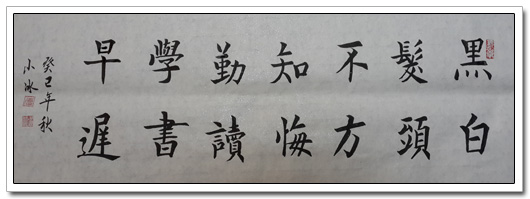 黑髮不知勤學早
白頭方悔讀書遲
癸巳年秋
小冰